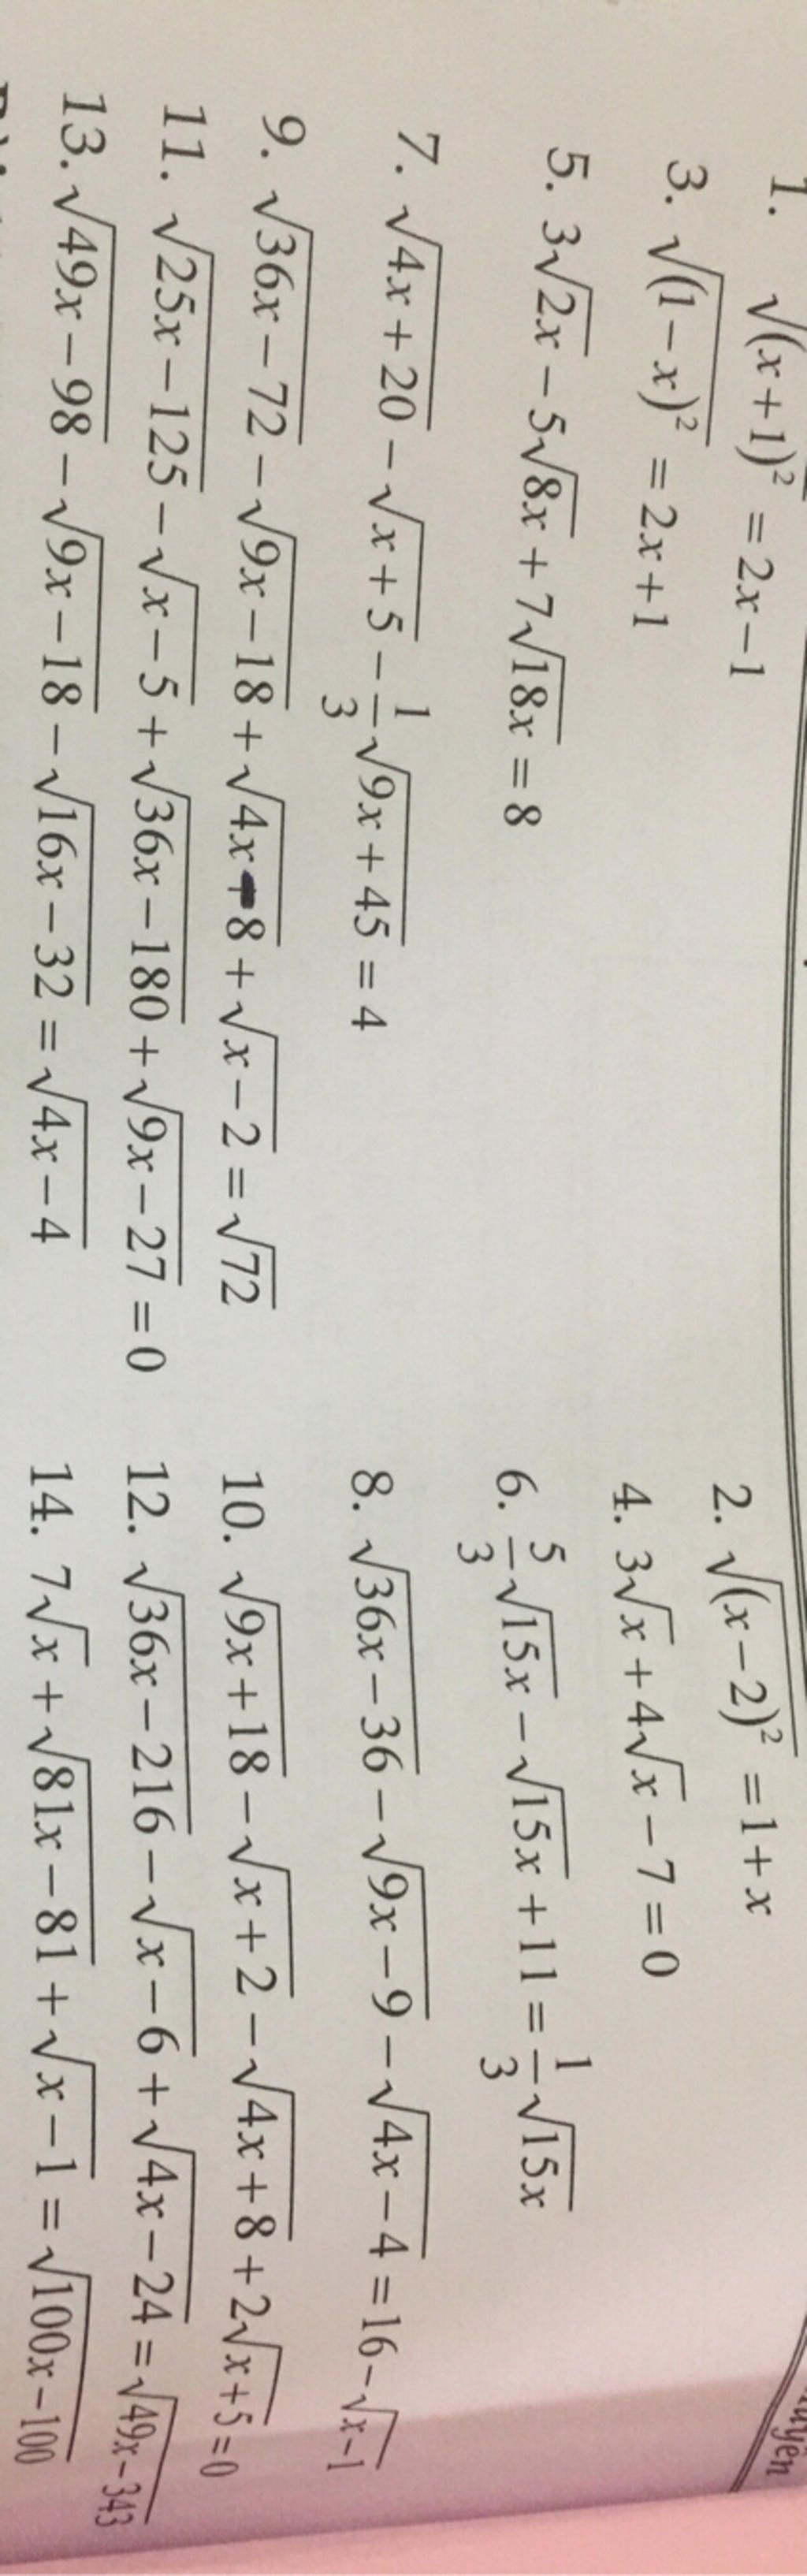 1. √(x+1)² = 2x−1
2. √(x−2)² = 1+x
3. √(1−x)² = 2x+1
4. 3√x + 4√x − 7 = 0
5. 3√2x − 5√8x + 7√18x = 8
6. 5/3 √15x − √15x + 11 = 1/3 √15x
7. √4x+20 − √x+5 − 1/3 √9x+45 = 4
8. √36x−36 − √9x−9 − √4x−4 = 16 − √x−1
9. √36x−72 − √9x−18 + √4x−8 + √x−2 = √72
10. √9x+18 − √x+2 − √4x+8 + 2√x+5 = 0
11. √25x−125 − √x−5 + √36x−180 + √9x−27 = 0
12. √36x−216 − √x−6 + √4x−24 = √49x−343
13. √49x−98 − √9x−18 − √16x−32 = √4x−4
14. 7√x + √81x−81 + √x−1 = √100x−100